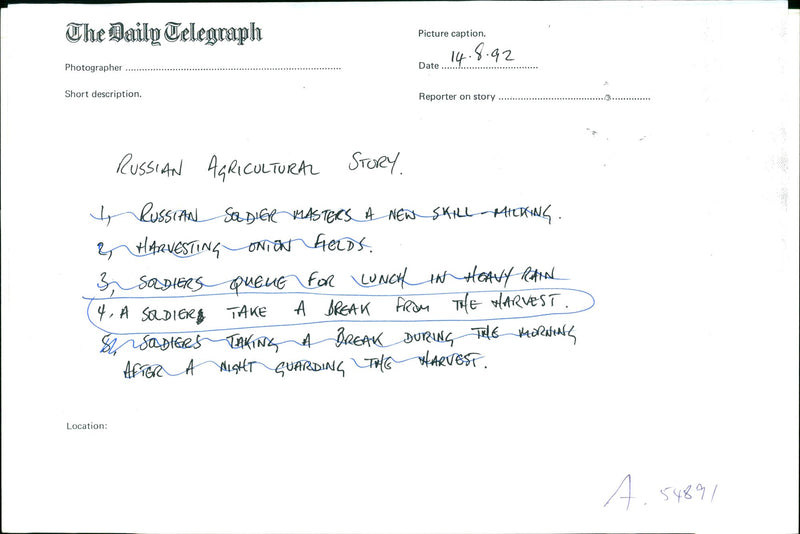 The Daily Telegraph
Picture caption.
Photographer
Date 14.8.92
Short description.
Reporter on story
RUSSIAN AGRICULTURAL STORY.
1, RUSSIAN SOLDIER MASTERS A NEW SKILL - MILKING.
2, HARVESTING ONION FIELDS.
3, SOLDIERS QUEUE FOR LUNCH IN HEAVY RAIN
4, A SOLDIERS TAKE A BREAK FROM THE HARVEST.
5, SOLDIERS TAKING A BREAK DURING THE MORNING
AFTER A NIGHT GUARDING THE HARVEST.
Location:
A. 54891